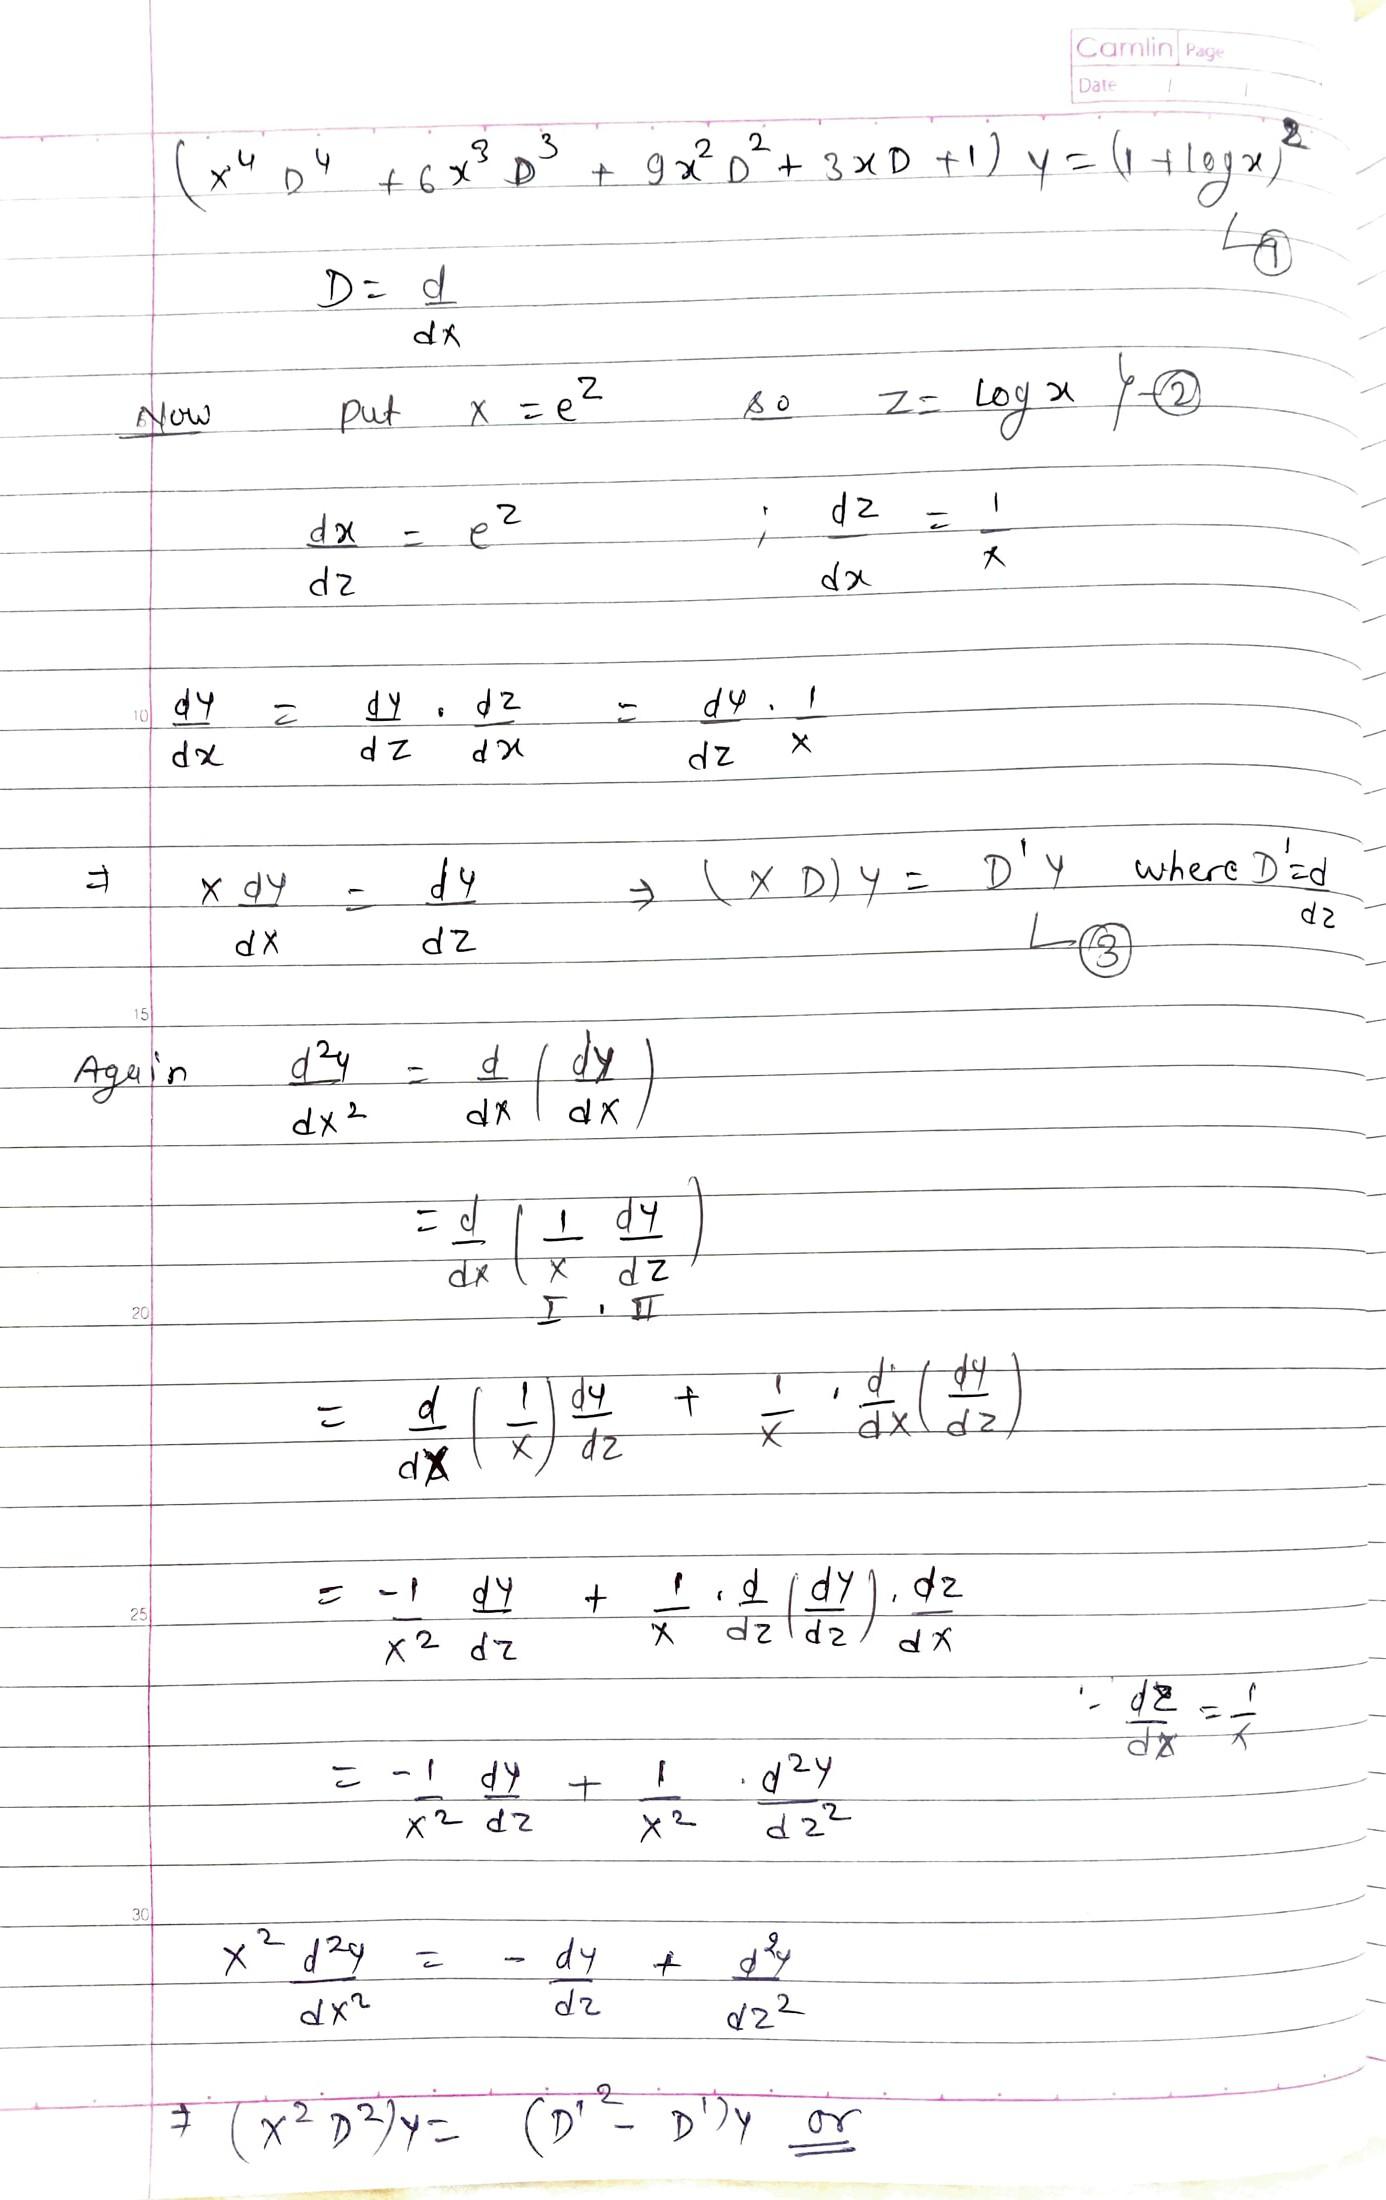 Camlin Page
Date / /
(x⁴ D⁴ + 6x³ D³ + 9x² D² + 3xD + 1) y = (1 + log x)²
↳ ①
D = d/dx
Now put x = e^z so z = log x } ②
dx/dz = e^z ; dz/dx = 1/x
10 dy/dx = dy/dz · dz/dx = dy/dz · 1/x
⇒ x dy/dx = dy/dz → (x D) y = D' y where D' = d/dz
↳ ③
15
Again d²y/dx² = d/dx (dy/dx)
= d/dx (1/x dy/dz)
I · II
20
= d/dx (1/x) dy/dz + 1/x · d/dx (dy/dz)
25 = -1/x² dy/dz + 1/x · d/dz (dy/dz) · dz/dx
∵ dz/dx = 1/x
= -1/x² dy/dz + 1/x² · d²y/dz²
30
x² d²y/dx² = - dy/dz + d²y/dz²
⇒ (x² D²) y = (D'² - D') y or